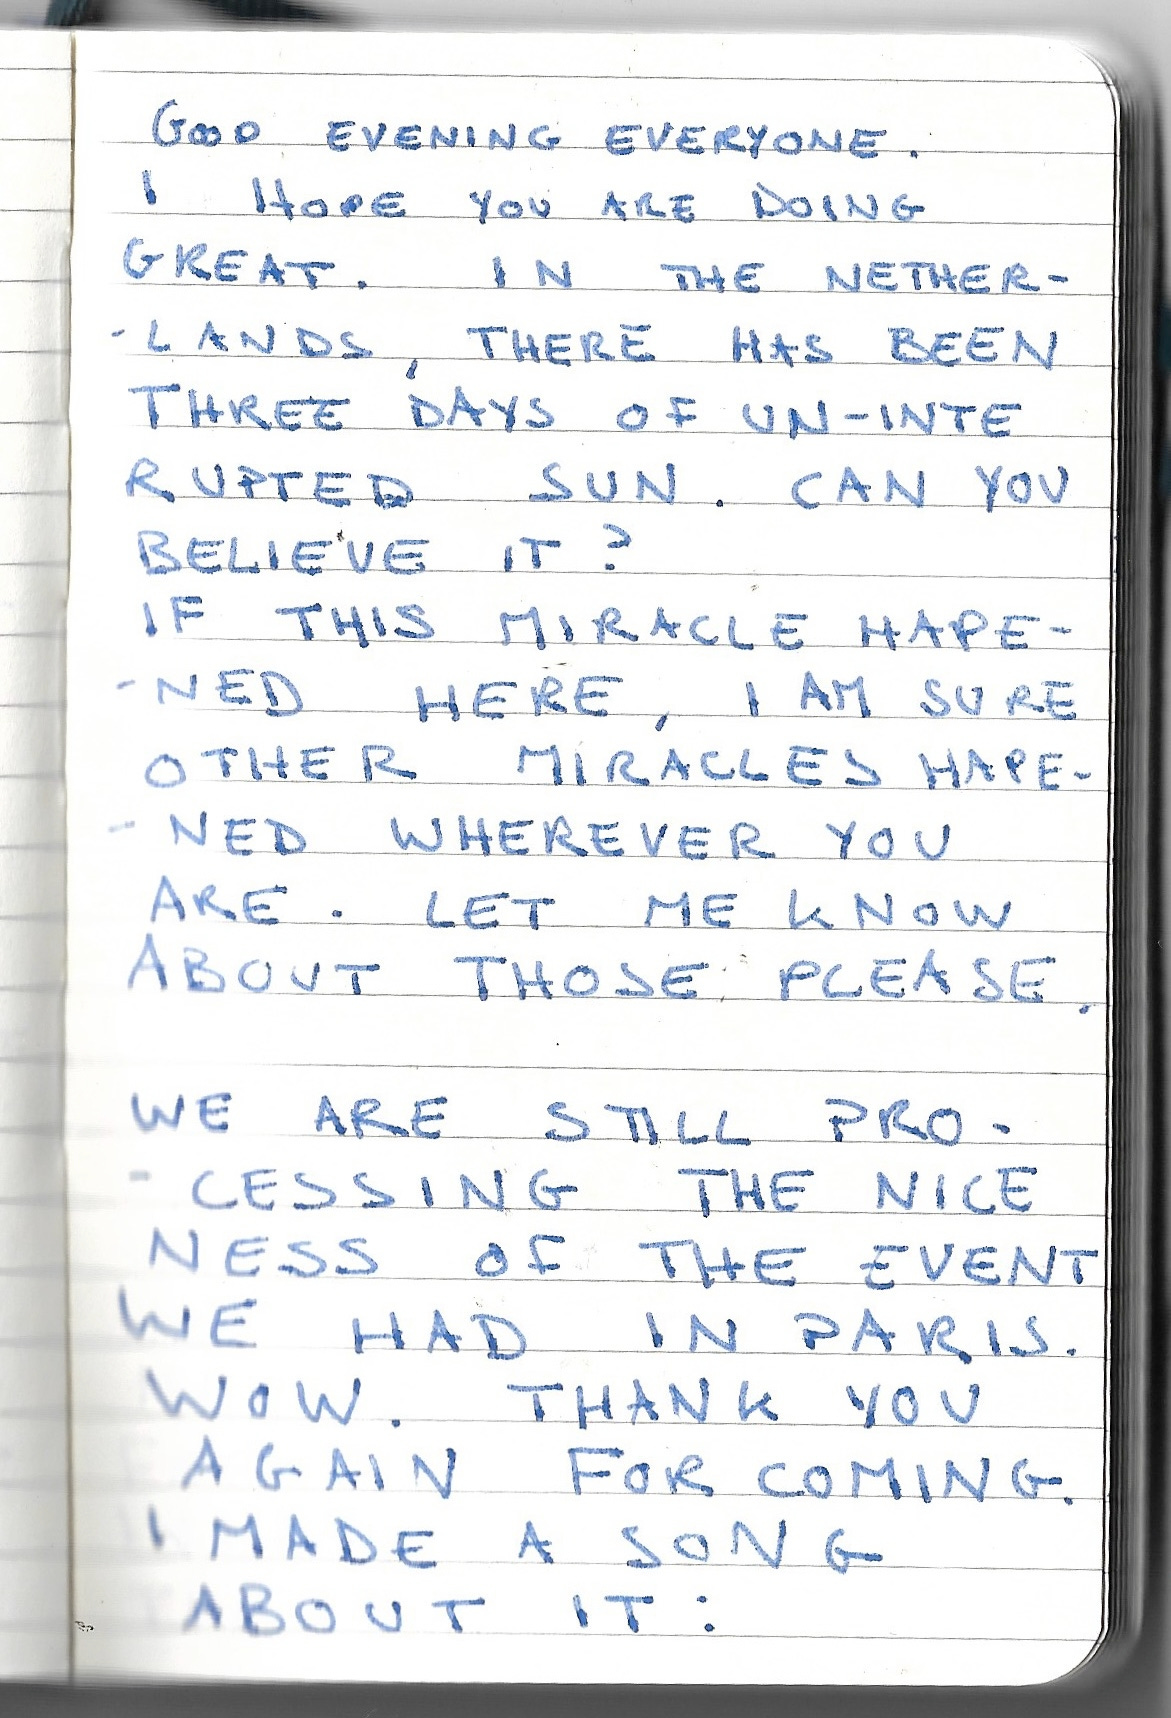 GOOD EVENING EVERYONE.
I HOPE YOU ARE DOING
GREAT. IN THE NETHER-
-LANDS, THERE HAS BEEN
THREE DAYS OF UN-INTE
RUPTED SUN. CAN YOU
BELIEVE IT?
IF THIS MIRACLE HAPE-
-NED HERE, I AM SURE
OTHER MIRACLES HAPE-
-NED WHEREVER YOU
ARE. LET ME KNOW
ABOUT THOSE PLEASE.
WE ARE STILL PRO-
-CESSING THE NICE
NESS OF THE EVENT
WE HAD IN PARIS.
WOW. THANK YOU
AGAIN FOR COMING.
I MADE A SONG
ABOUT IT: